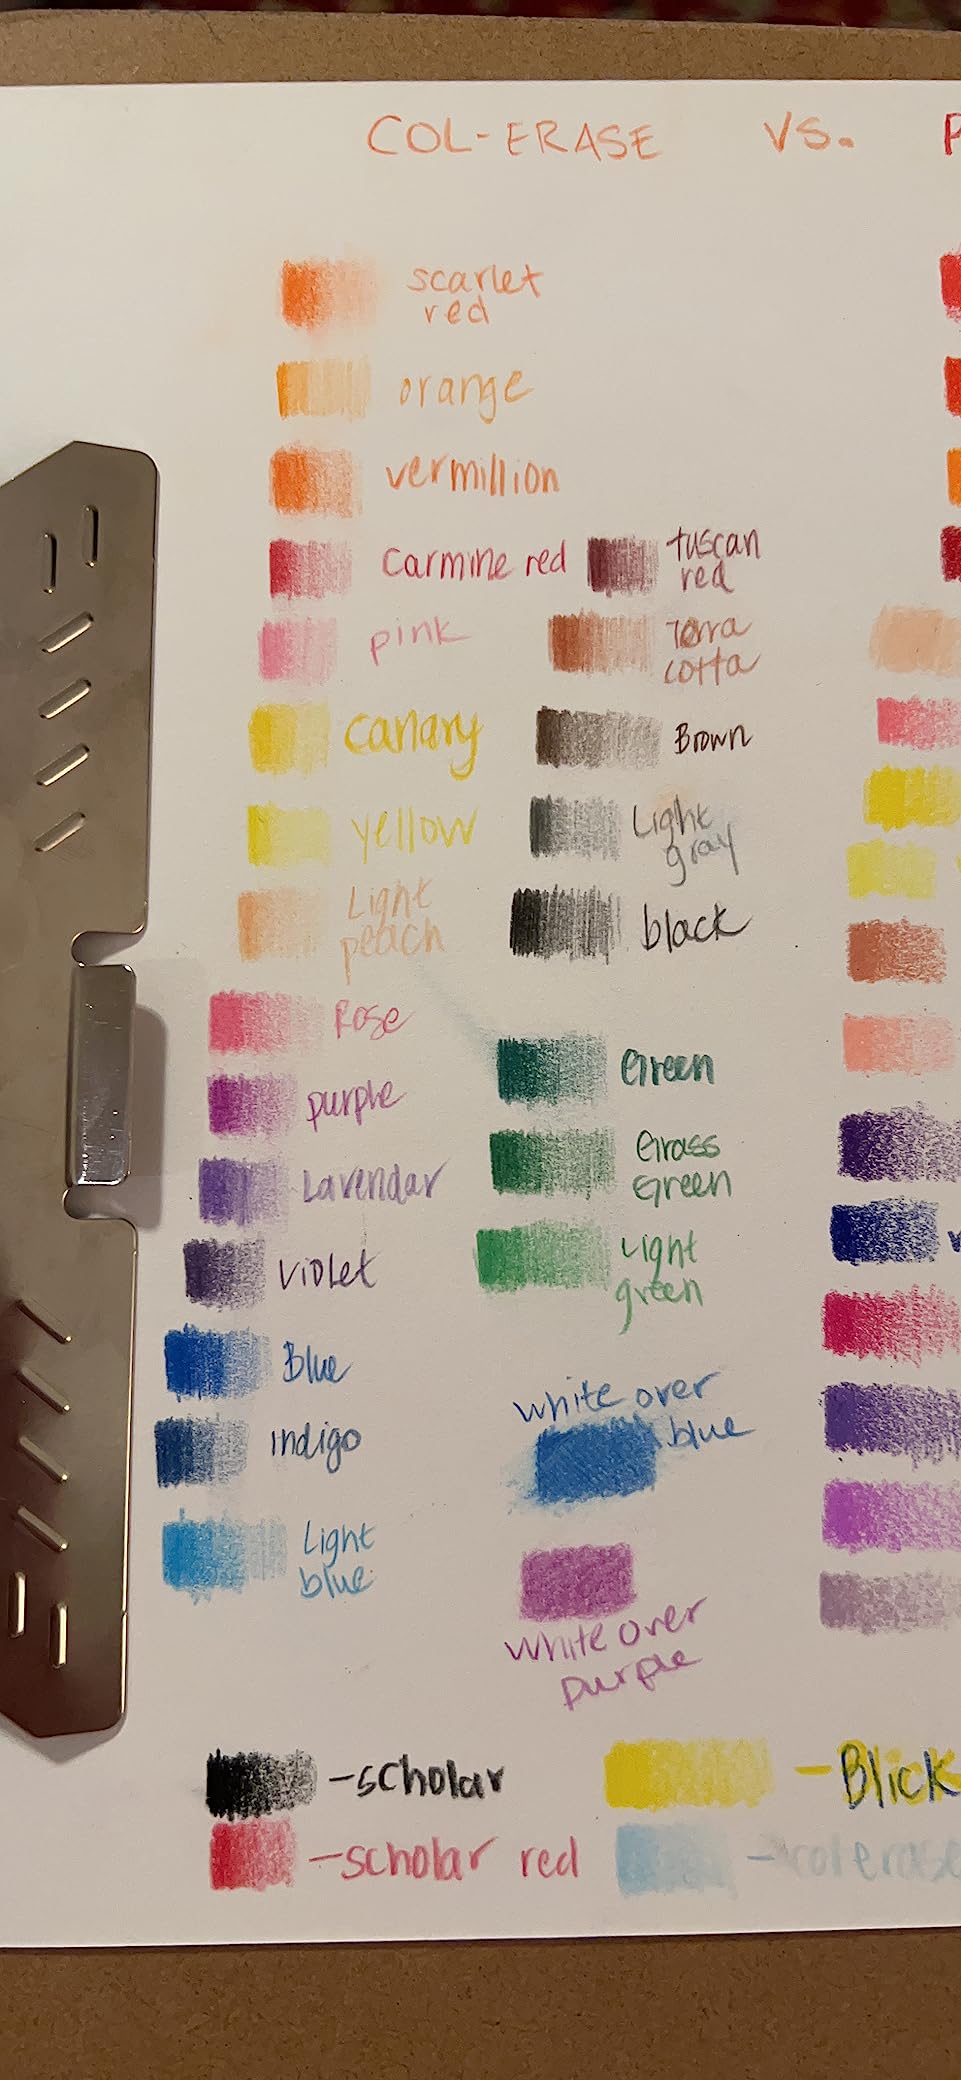 COL-ERASE VS. P
scarlet
red
orange
vermillion
Carmine red
pink
canary
yellow
Light
peach
Rose
purple
Lavendar
Violet
Blue
Indigo
Light
blue
tuscan
red
Terra
cotta
Brown
Light
gray
black
Green
Grass
Green
Light
green
white over
blue
white over
purple
-scholar
-scholar red
-Blick
-col erase